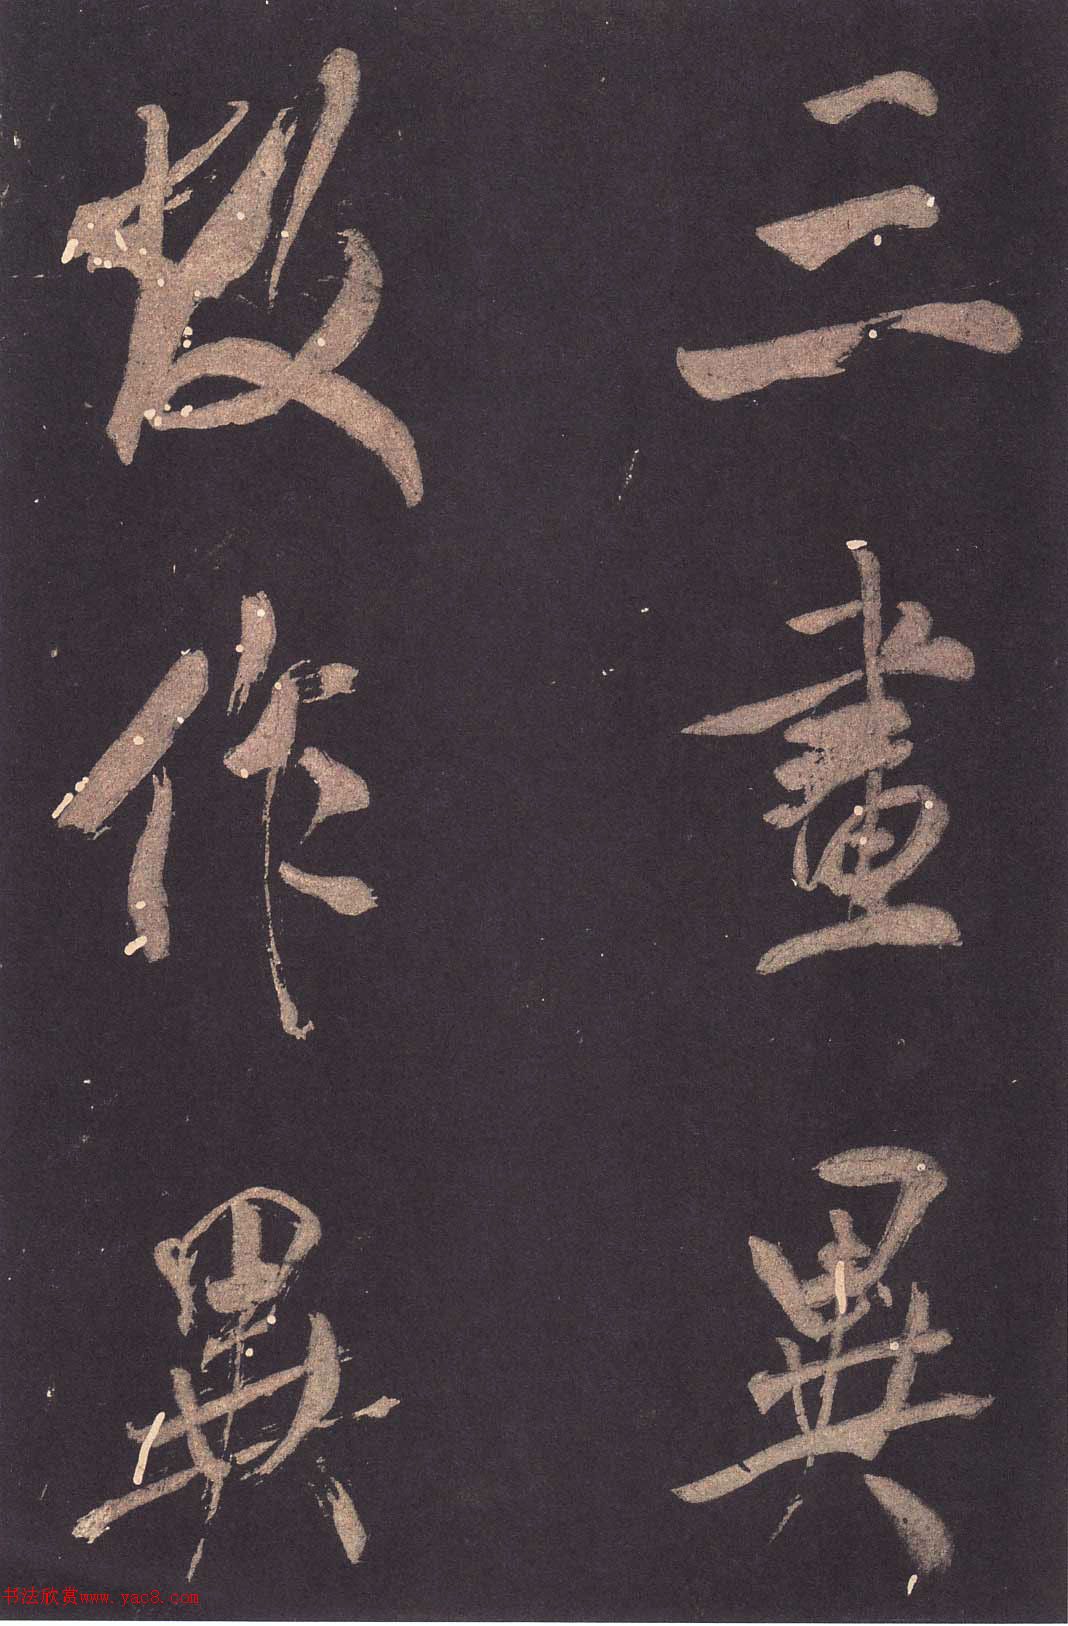 三畫異
故作異
书法欣赏www.yac8.com